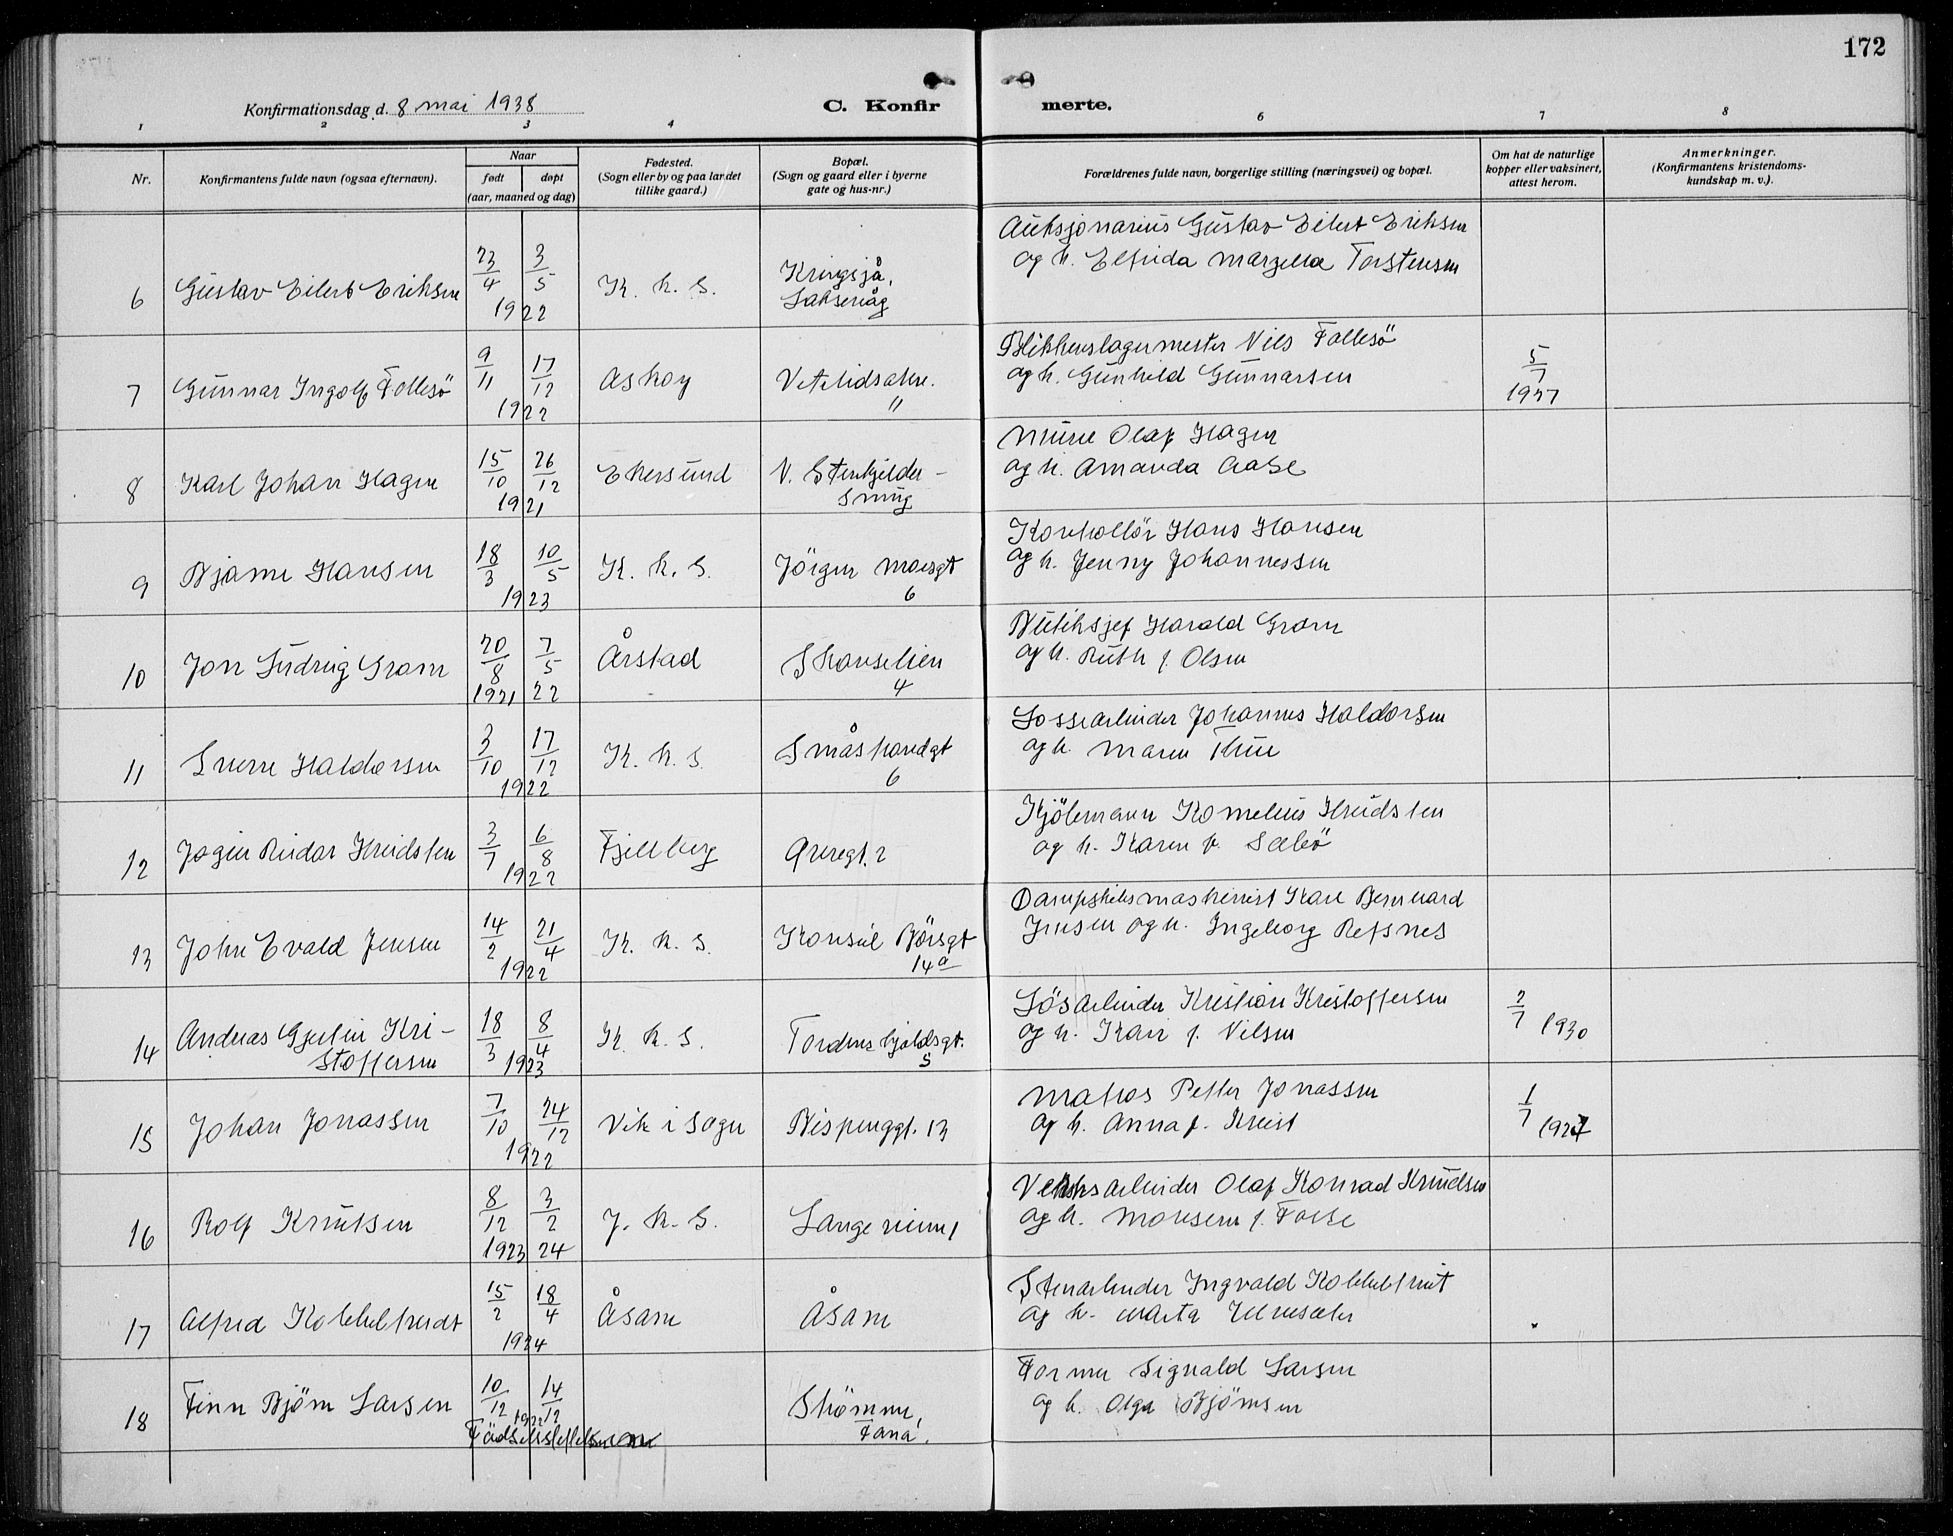 172
Konfirmationsdag d. 8 mai 1938
C. Konfirmerte.
1 2 3 4 6 7 8
Nr.
Konfirmantens fulde navn (ogsaa efternavn).
Naar
født døpt
(aar, maaned og dag)
Fødested.
(Sogn eller by og paa landet
tillike gaard.)
Bopæl.
(Sogn og gaard eller i byerne
gate og hus-nr.)
Forældrenes fulde navn, borgerlige stilling (næringsvei) og bopæl.
Om hat de naturlige
kopper eller vaksinert,
attest herom.
Anmerkninger.
(Konfirmantens kristendoms-
kundskap m. v.).
6 Gustav Eilert Eriksen 23/4 3/5 1922 K. k. S. Kringsjå,
Auksjonarius Gustav Eilert Eriksen
og h. Elfrida Margella Torstensen
7 Gunnar Ingolf Follesö 9/11 17/12 1922 Askøy Vetrlidsalm.
"
Blikkenslagermester Nils Follesö
og h. Gunhild Gunnarsen
5/7
1937
8 Karl Johan Hagen 15/10 26/12 1921 Ekersund N. Stenkjelder-
smug
Murer Olaf Hagen
og h. Amanda Aase
9 Bjarne Hansen 18/3 10/5 1923 K. k. S. Jörgen Moesgt
6
Kontrollör Hans Hansen
og h. Jenny Johannessen
10 Jon Ludvig Gram 20/8 1921 7/5 22 Årstad Skanselien
4
Butiksjef Harald Gram
og h. Ruth f. Olsen
11 Sverre Haldorsen 3/10 17/12 1922 K. k. S. Småstrandgt
6
Lossearbeider Johannes Haldorsen
og h. Maren Thue
12 Reidar Knudsen 3/7 6/8 1922 Fjellberg Øvregt. 2
Kjölemann Kornelius Knudsen
og h. Karen f. Sæbö
13 John Evald Jensen 14/2 21/4 1922 K. k. S. Konsul Börsgt
14a
Dampskibsmaskinist Karl Bernhard
Jensen og h. Ingeborg Refsnes
14 Andreas Gjertin Kri-
stoffersen 18/3 8/4 1923 K. k. S. Tordenskjoldsgt.
5
Lösarbeider Kristian Kristoffersen
og h. Kari f. Nilsen
2/7 1930
15 Johan Jonassen 7/10 24/12 1922 Vik i Sogn Bispenggt. 13
Matros Petter Jonassen
og h. Anna f.
1/7 1927
16 Rolf Knutsen 8/12 1923 3/2 24 J. k. S. Lange
Verksarbeider Olaf Konrad Knudsen
og h. Monsen f. Fosse
17 Alfred Kolkheltveit 15/2 18/4 1924 Åsane Åsane
Stenarbeider Ingvald
og h. Marta
18 Finn Bjørn Larsen 10/12 14/12 1922
Strömme,
Fana.
Former Sigvald Larsen
og h. Olga Bjørnsen